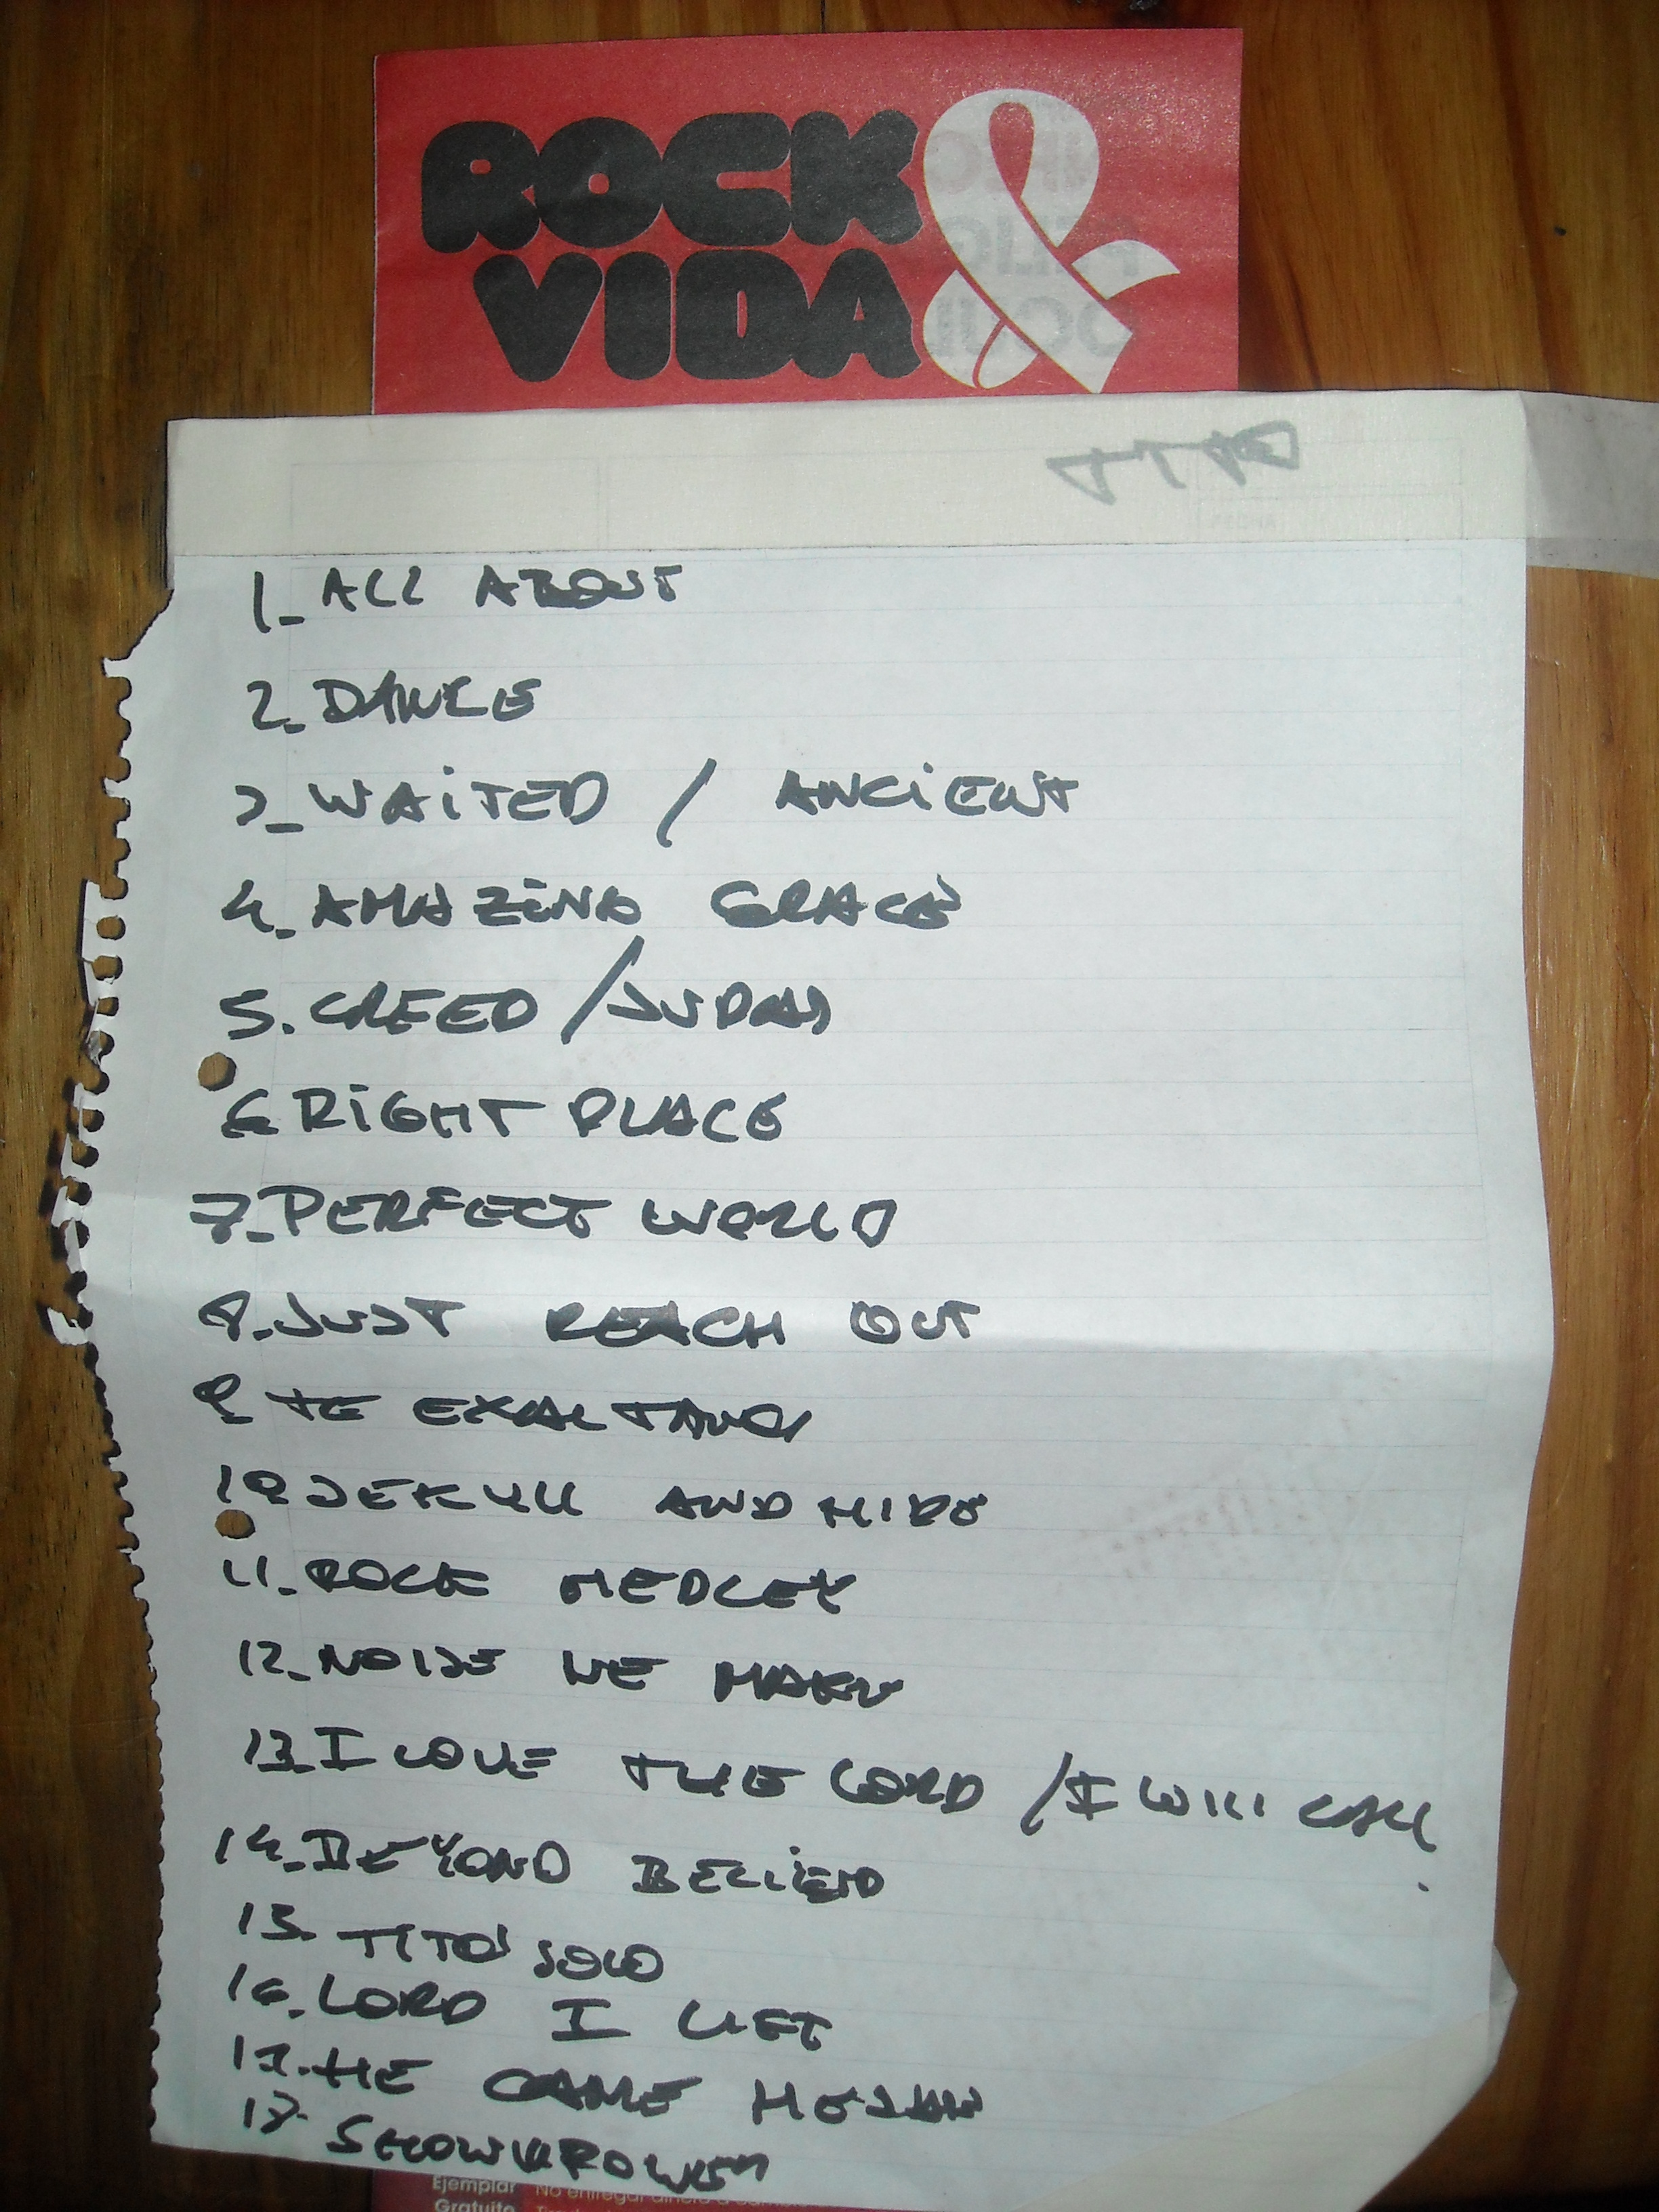 ROCK &
VIDA
1_ ALL ABOUT
2_ DANCE
3_ WAITED / ANCIENT
4_ AMAZING GRACE
5. CREED / JUDAS
6 RIGHT PLACE
7_ PERFECT WORLD
8. JUST REACH OUT
9_ TE EXALTAMOS
10 JEKYLL AND HIDE
11_ ROCK MEDLEY
12_ NOISE WE MAKE
13_ I LOVE THE LORD / I WILL CALL
14_ BEYOND BELIEF
15. TITO'S SOLO
16_ LORD I LIFT
17. HE CAME
18. SHOWBROWER
Ejemplar No entregar dinero a
Gratuito